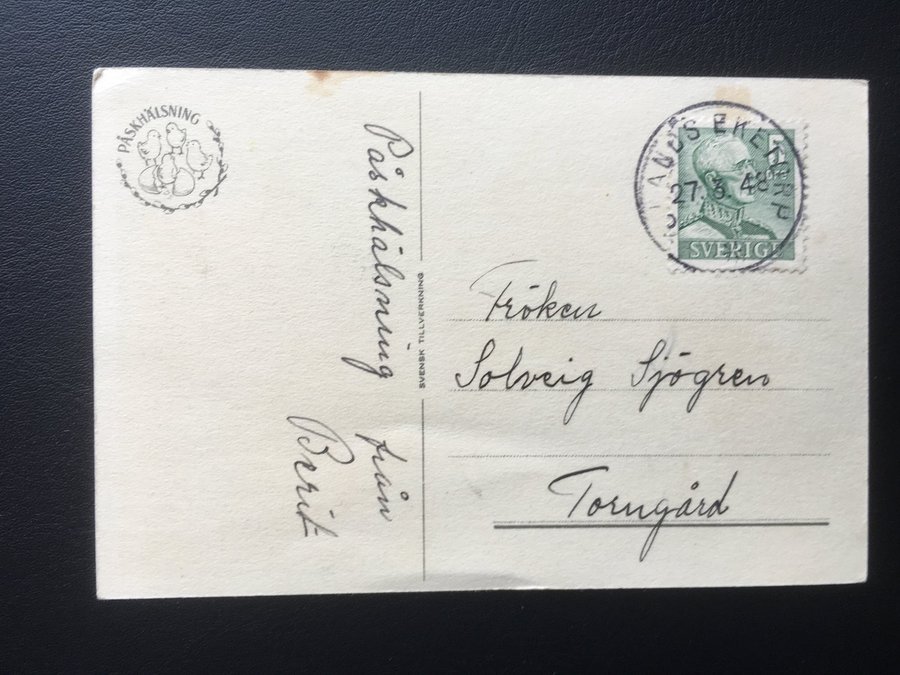 PÅSKHÄLSNING
Påskhälsning från
Berit
SVENSK TILLVERKNING
ÖLANDS EKETORP
27. 3. 48
5
SVERIGE
Fröken
Solveig Sjögren
Torngård